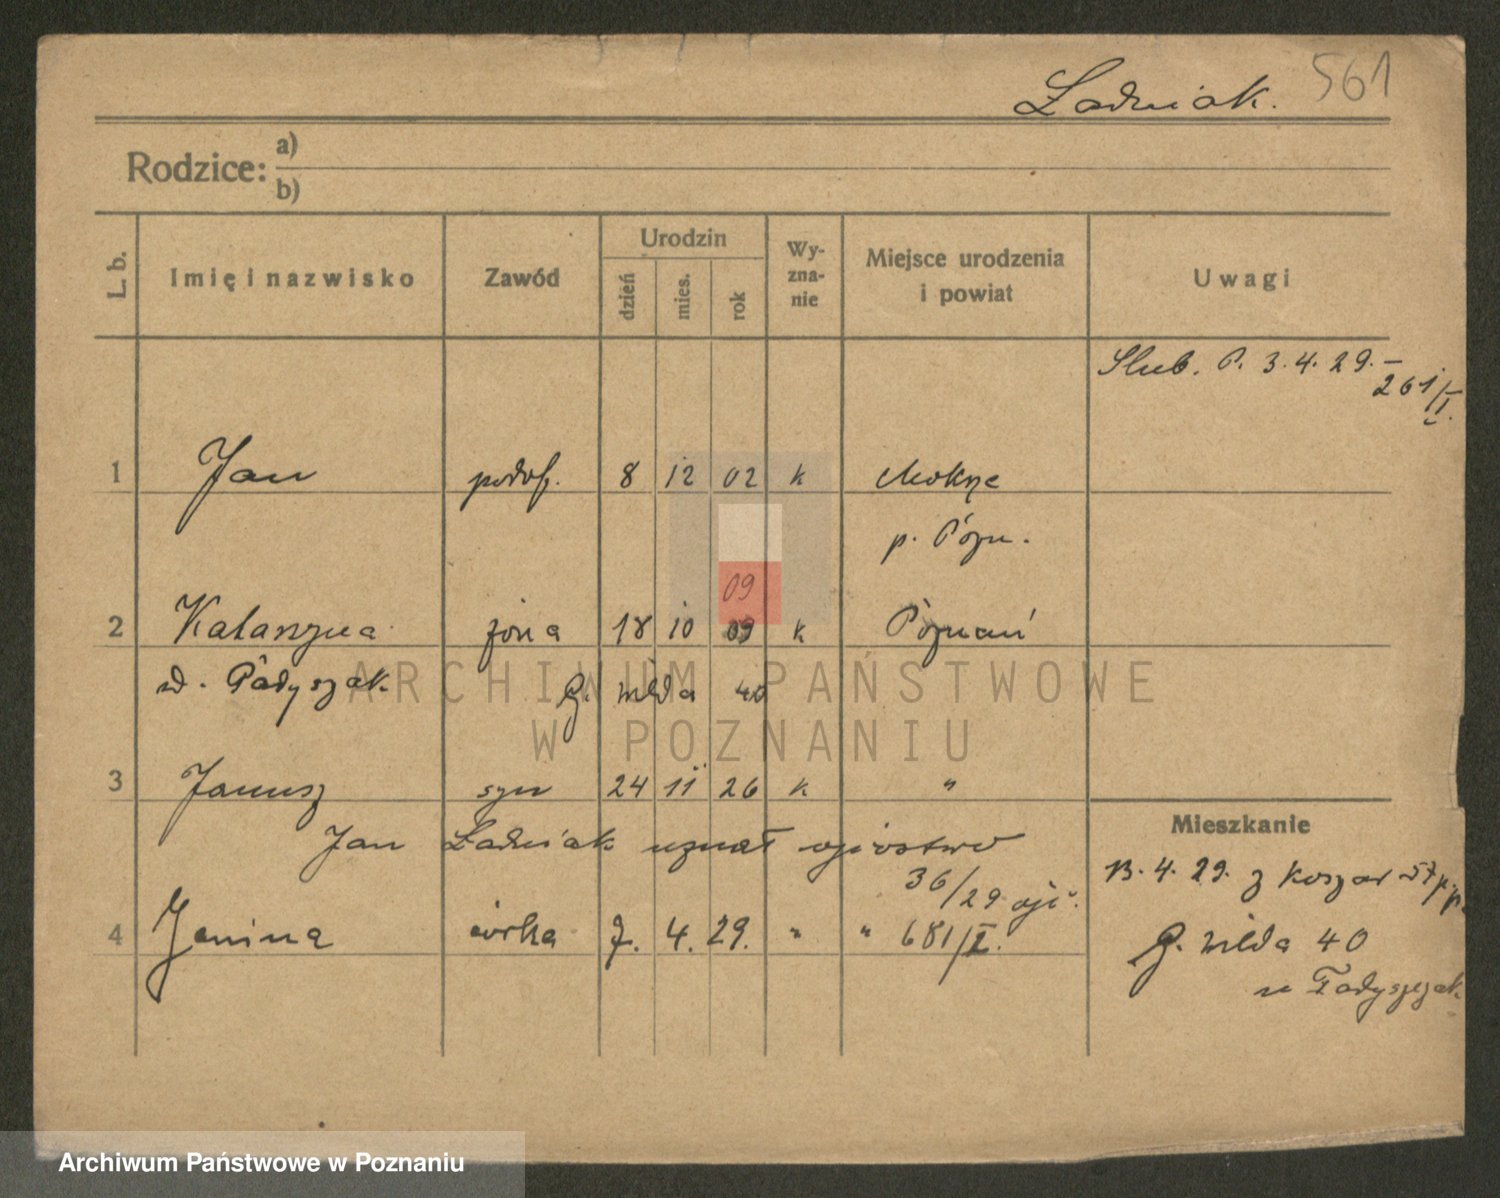 Ładniak. 561
Rodzice: a)
b)
L. b. Imię i nazwisko Zawód Urodzin dzień mies. rok Wy-zna-nie Miejsce urodzenia i powiat Uwagi
Slub. P. 3.4.29. – 261/I.
1 Jan podof. 8 12 02 k Mokrze
p. Pozn.
09
2 Katarzyna żona 18 10 09 k Poznań
G. Wilda 40
ARCHIWUM PAŃSTWOWE
W POZNANIU
3 Janusz syn 24 11 26 k "
Mieszkanie
Jan Ładniak uznał ojcostwo
13.4.29. z Koszar 57 p.p.
36/29 ojc.
4 Janina córka 7. 4. 29. " " 681/I.
G. Wilda 40
Archiwum Państwowe w Poznaniu